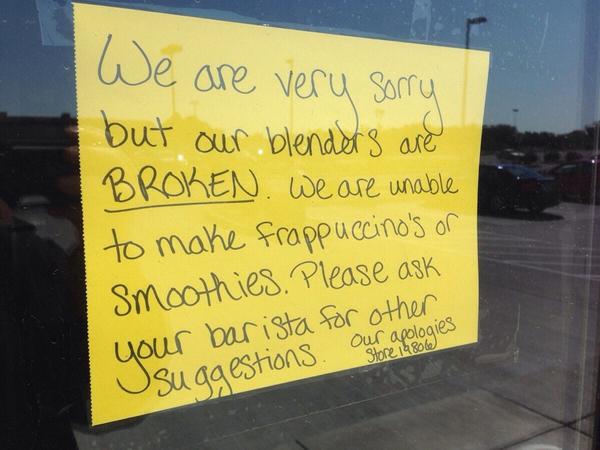 We are very sorry
but our blenders are
BROKEN. We are unable
to make frappuccino's or
smoothies. Please ask
your barista for other
suggestions.
Our apologies
Store 19806